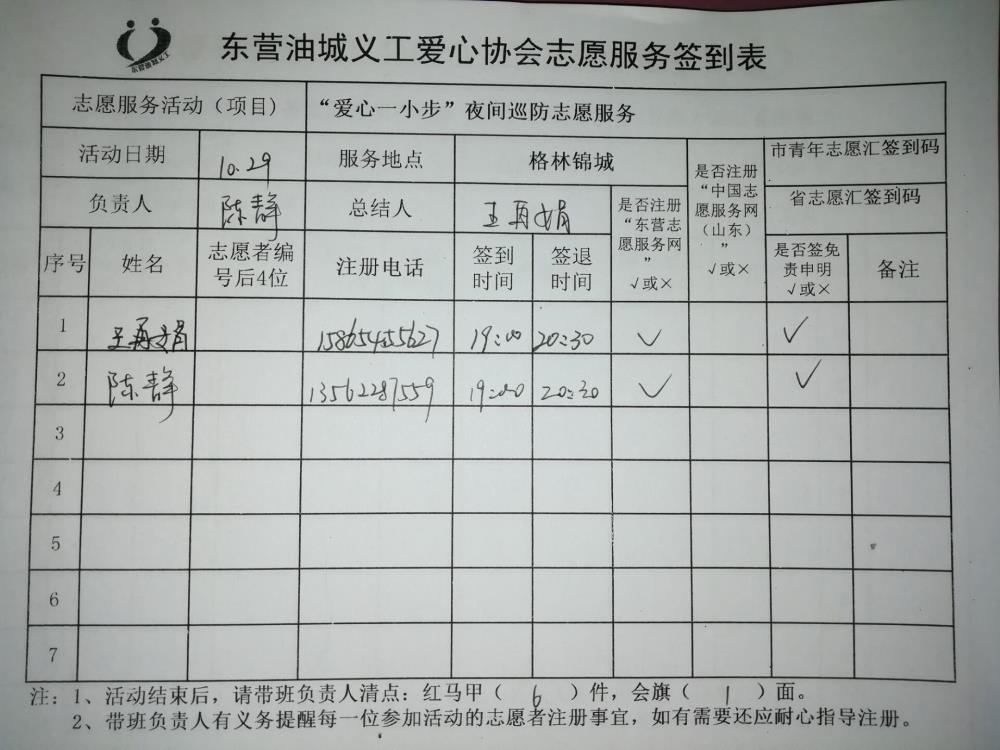 东营油城义工
东营油城义工爱心协会志愿服务签到表
志愿服务活动（项目） “爱心一小步”夜间巡防志愿服务
活动日期 10.29 服务地点 格林锦城 是否注册“中国志愿服务网（山东）” √或× 市青年志愿汇签到码
负责人 陈静 总结人 王再娟 是否注册“东营志愿服务网” √或× 省志愿汇签到码
序号 姓名 志愿者编号后4位 注册电话 签到时间 签退时间 是否签免责申明 √或× 备注
1 王再娟 15865455627 19:00 20:30 √ √
2 陈静 13562287559 19:00 20:30 √ √
3
4
5
6
7
注：1、活动结束后，请带班负责人清点：红马甲（ 6 ）件，会旗（ 1 ）面。
2、带班负责人有义务提醒每一位参加活动的志愿者注册事宜，如有需要还应耐心指导注册。